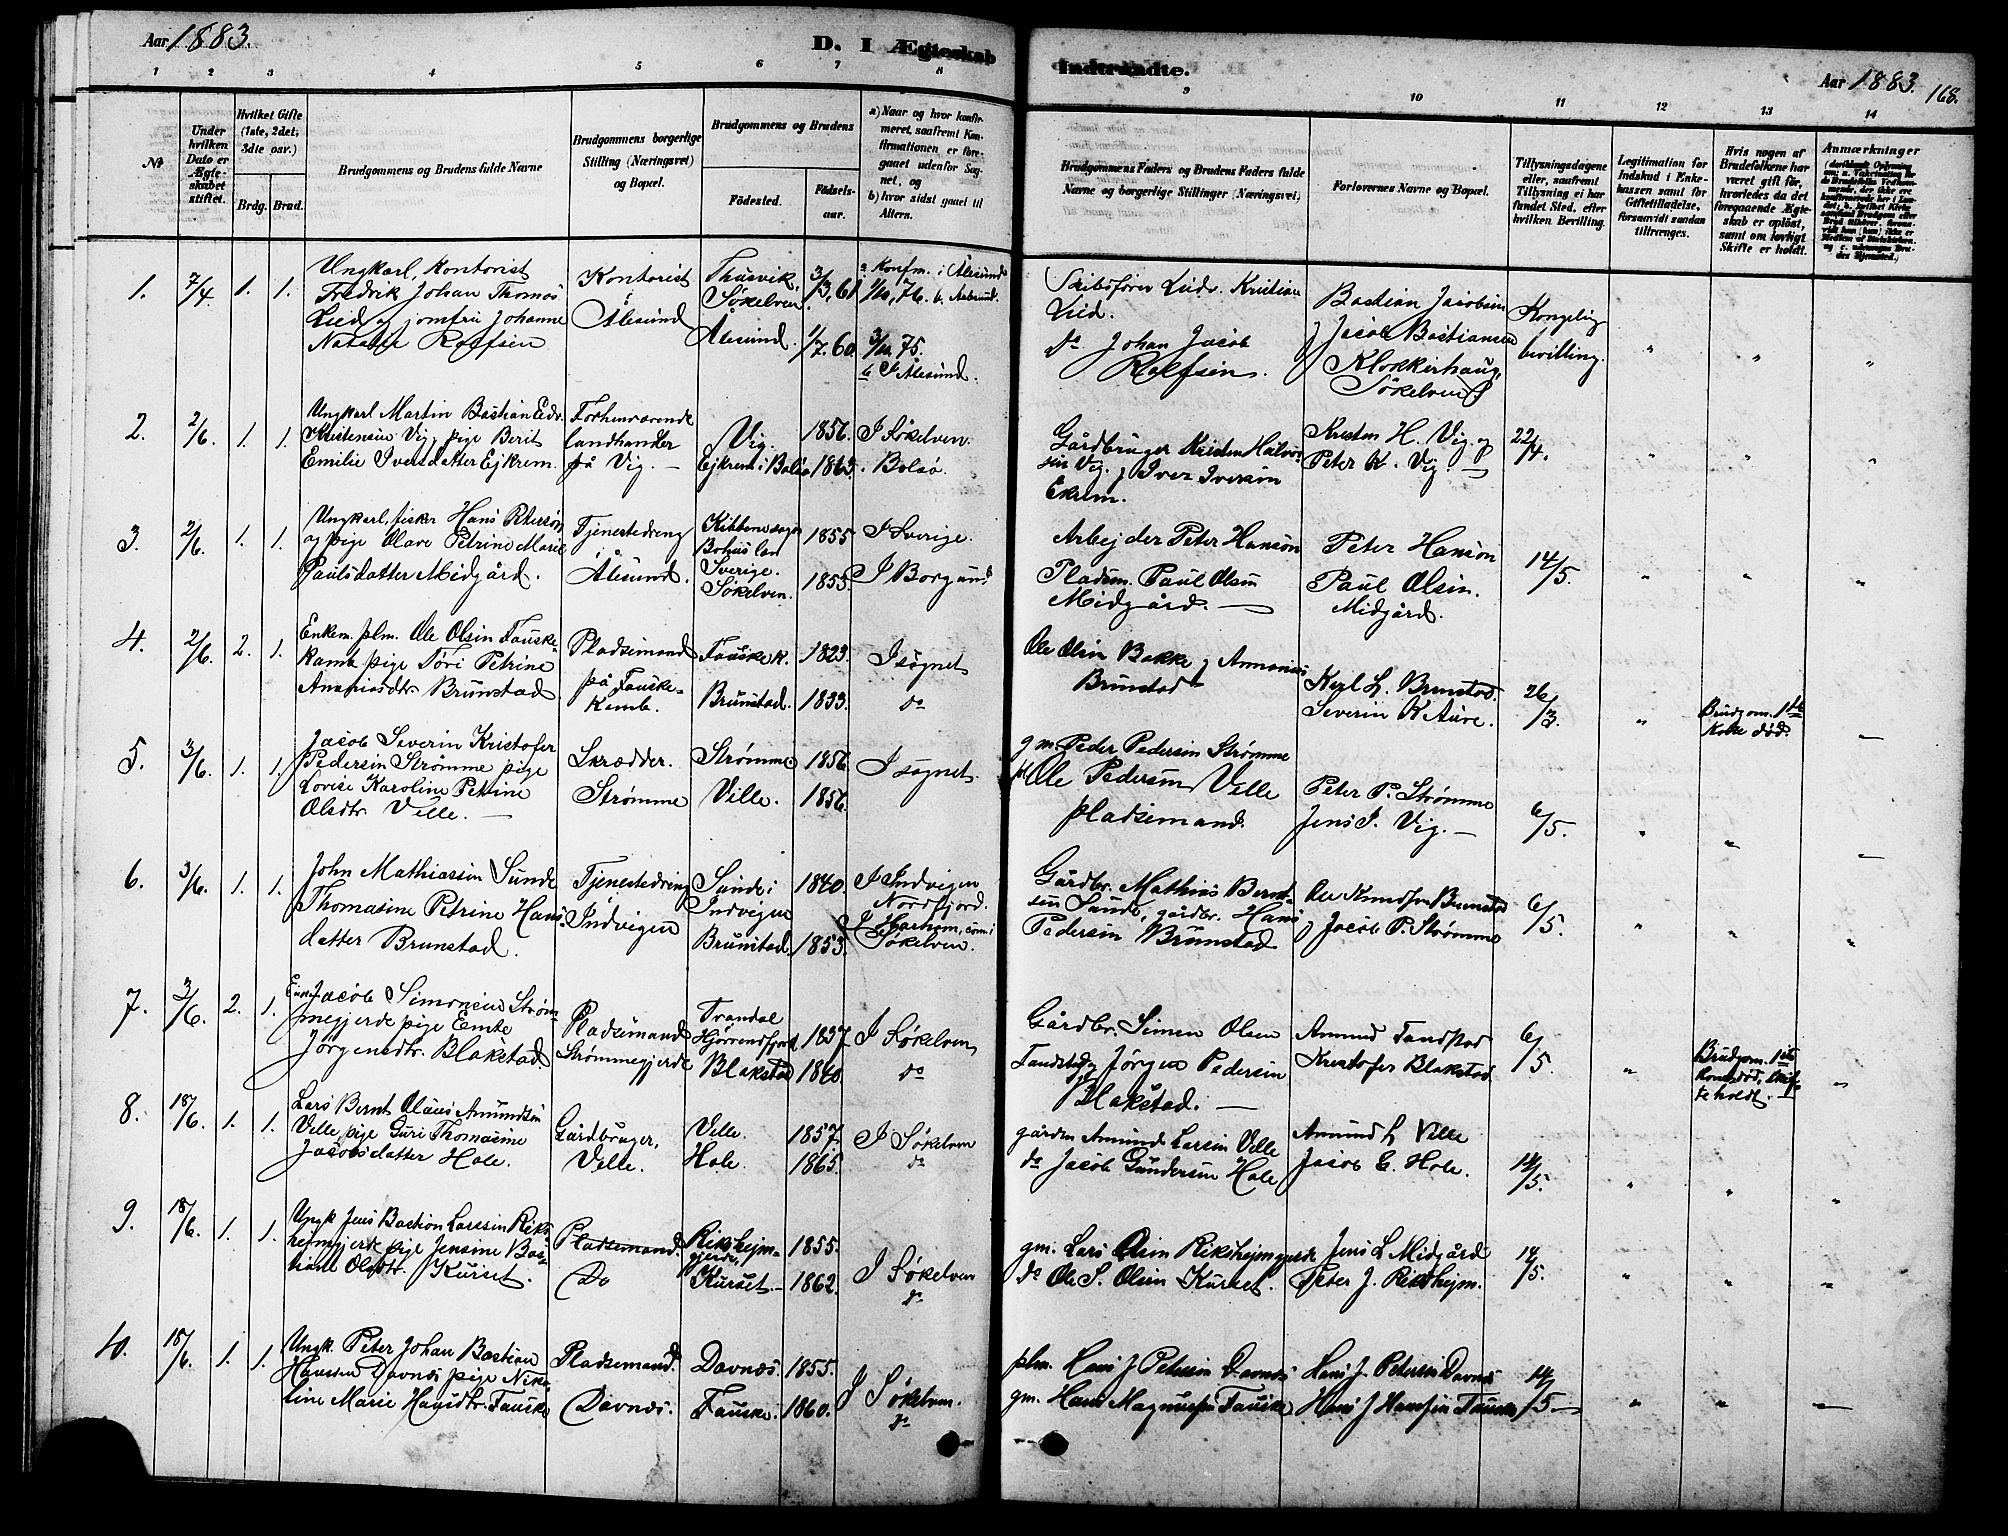 Aar 1883.
D. I Ægteskab
Indtraadte.
Aar 1883.
168.
1 2 3 4 5 6 7 8 9 10 11 12 13 14
No
Under hvilken Dato er Ægteskabet stiftet.
Hvilket Gifte (1ste, 2det, 3die osv.)
Brdg. Brud.
Brudgommens og Brudens fulde Navne
Brudgommens borgerlige Stilling (Næringsvei) og Bopæl.
Brudgommens og Brudens
Fødested.
Fødselsaar.
a) Naar og hvor konfirmeret, saafremt Konfirmationen er foregaaet udenfor Sognet, og
b) hvor sidst gaaet til Alters.
Brudgommens Faders og Brudens Faders fulde Navne og borgerlige Stillinger (Næringsvei)
Forlovernes Navne og Bopæl.
Tillysningsdagene eller, saafremt Tillysning ei har fundet Sted, efter hvilken Bevilling.
Legitimation for Indskud i Enkekassen samt for Giftetilladelse, forsaavidt saadan tiltrænges.
Hvis nogen af Brudefolkene har været gift før, hvorledes da det foregaaende Ægteskab er opløst, samt om lovligt Skifte er holdt.
Anmærkninger
1. 7/4 1. 1.
Ungkarl, Kontorist
Fredrik Johan Thomas
Lied og jomfru Johanne
Natalie Rolfsen
Kontorist
Ålesund
Thusvik,
Søkelven.
Ålesund.
3/3, 61
1/7. 60.
a Konfm. i Ålesund
1/10, 76.
3/10 75.
b I Ålesund.
Skibsfører Ludv. Kristian
Lied.
do Johan Jacob
Rolfsen.
Bastian Jacobsen
Jacob Bastiansen
Klokkerhaug,
Søkelven
Kongelig
bevilling.
2. 2/6. 1. 1.
Ungkarl Martin Bastian Edv.
Kristensen Vig, pige Berit
Emilie Iversdatter Ejkrem.
Forhenværende
landhandler
på Vig.
Vig.
Ejkrem i Bolsø
1856.
1863.
I Søkelven.
Bolsø.
Gårdbruger Kristen Halvorsen
Vig. Iver Iversen
Ekrem.
Kristen H. Vig. og
Peter K. Vig.
22/4.
3. 2/6. 1. 1.
Ungkarl, fisker Hans Petersøn
og pige Olave Petrine Marie
Paulsdatter Midgård.
Tjenestedreng
Ålesund.
Bohus len
Sverige.
Søkelven.
1855
1855.
I Sverige.
I Borgund
Arbejder Peter Hansøn
Pladsm. Paul Olsen
Midgård.
Peter Hansøn
Paul Olsen.
Midgård.
14/5.
4. 2/6. 2. 1.
Enkem. plm. Ole Olsen Fauskekamb
pige Tøri Petrine
Ananiasdtr. Brunstad
Pladsemand
på Fauskekamb.
Fauske k.
Brunstad.
1823.
1833.
I sognet
do
Ole Olsen Bakke, Annanias
Brunstad
Karl L. Brunstad.
Severin K Aure.
26/3.
Brudgom. 1ste
Kone død.
5. 3/6. 1. 1.
Jacob Severin Kristofer
Pedersen Strømme pige
Lovise Karoline Petrine
Olsdtr. Velle.
Skrædder.
Strømme
Strømme
Velle.
1856.
1856.
I sognet.
gm. Peder Pedersen Strømme
Ole Pedersen Velle
pladsemand.
Peter P. Strømme
Jens I. Vig.
6/5.
6. 3/6. 1. 1.
John Mathiassen Sunde
Thomasine Petrine Hansdatter
Brunstad.
Tjenestedreng
Indvigen
Sunde i
Indvigen
Brunstad.
1840.
1853.
I Indvigen
Nordfjord.
I Harham, com. i
Søkelven.
Gårdbr. Mathias Berntsen
Sunde, gårdbr. Hans
Pedersen Brunstad
Ole Knudsen Brunstad
Jacob P. Strømme
6/5.
7. 3/6. 2. 1.
Enkem. Jacob Simonsen Strømmegjerde
pige Emte
Jørgensdtr. Blakstad.
Pladsemand
Strømmegjerde
Trandal
Hjørendfjord
Blakstad
1837
1840.
I Søkelven
do
Gårdbr. Simen Olsen
Tandstad, Jørgen Pedersen
Blakstad.
Amund Tandstad
Kristofer Blakstad
6/5.
Brudgom. 1ste
Kone død, Skifte
holdt.
8. 18/6. 1. 1.
Lars Bernt Olaus Amundsen
Velle, pige Guri Thomasine
Jacobsdatter Hole.
Gårdbruger,
Velle.
Velle.
Hole.
1857.
1865.
I Søkelven
do
gårdm Amund Larsen Velle
do Jacob Gundersen Hole
Amund L Velle
Jacob G. Hole.
14/5.
9. 18/6. 1. 1.
Ungk Jens Bastian Larssen Riksheimgjerde
pige Jensine Bastiane
Olsdtr. Kurset.
Pladsemand.
Do
Riksheimgjerde,
Kurset.
1855.
1862.
I Søkelven
do
gm. Lars Olsen Riksheimgjerde
do Ole S. Olsen Kurset.
Jens L Midgård
Peter J. Riksheim.
14/5.
10. 18/6. 1. 1.
Ungk. Peter Johan Bastian
Hansen Davnes pige Nikoline
Marie Hansdtr. Fauske
Pladsemand.
Davnes.
Davnes.
Fauske.
1855.
1860.
I Søkelven.
do
plm. Hans J Petersen Davnes
gm. Hans Magnussen Fauske
Hans J. Petersen Davnes
Hans J Hansen Fauske
14/5